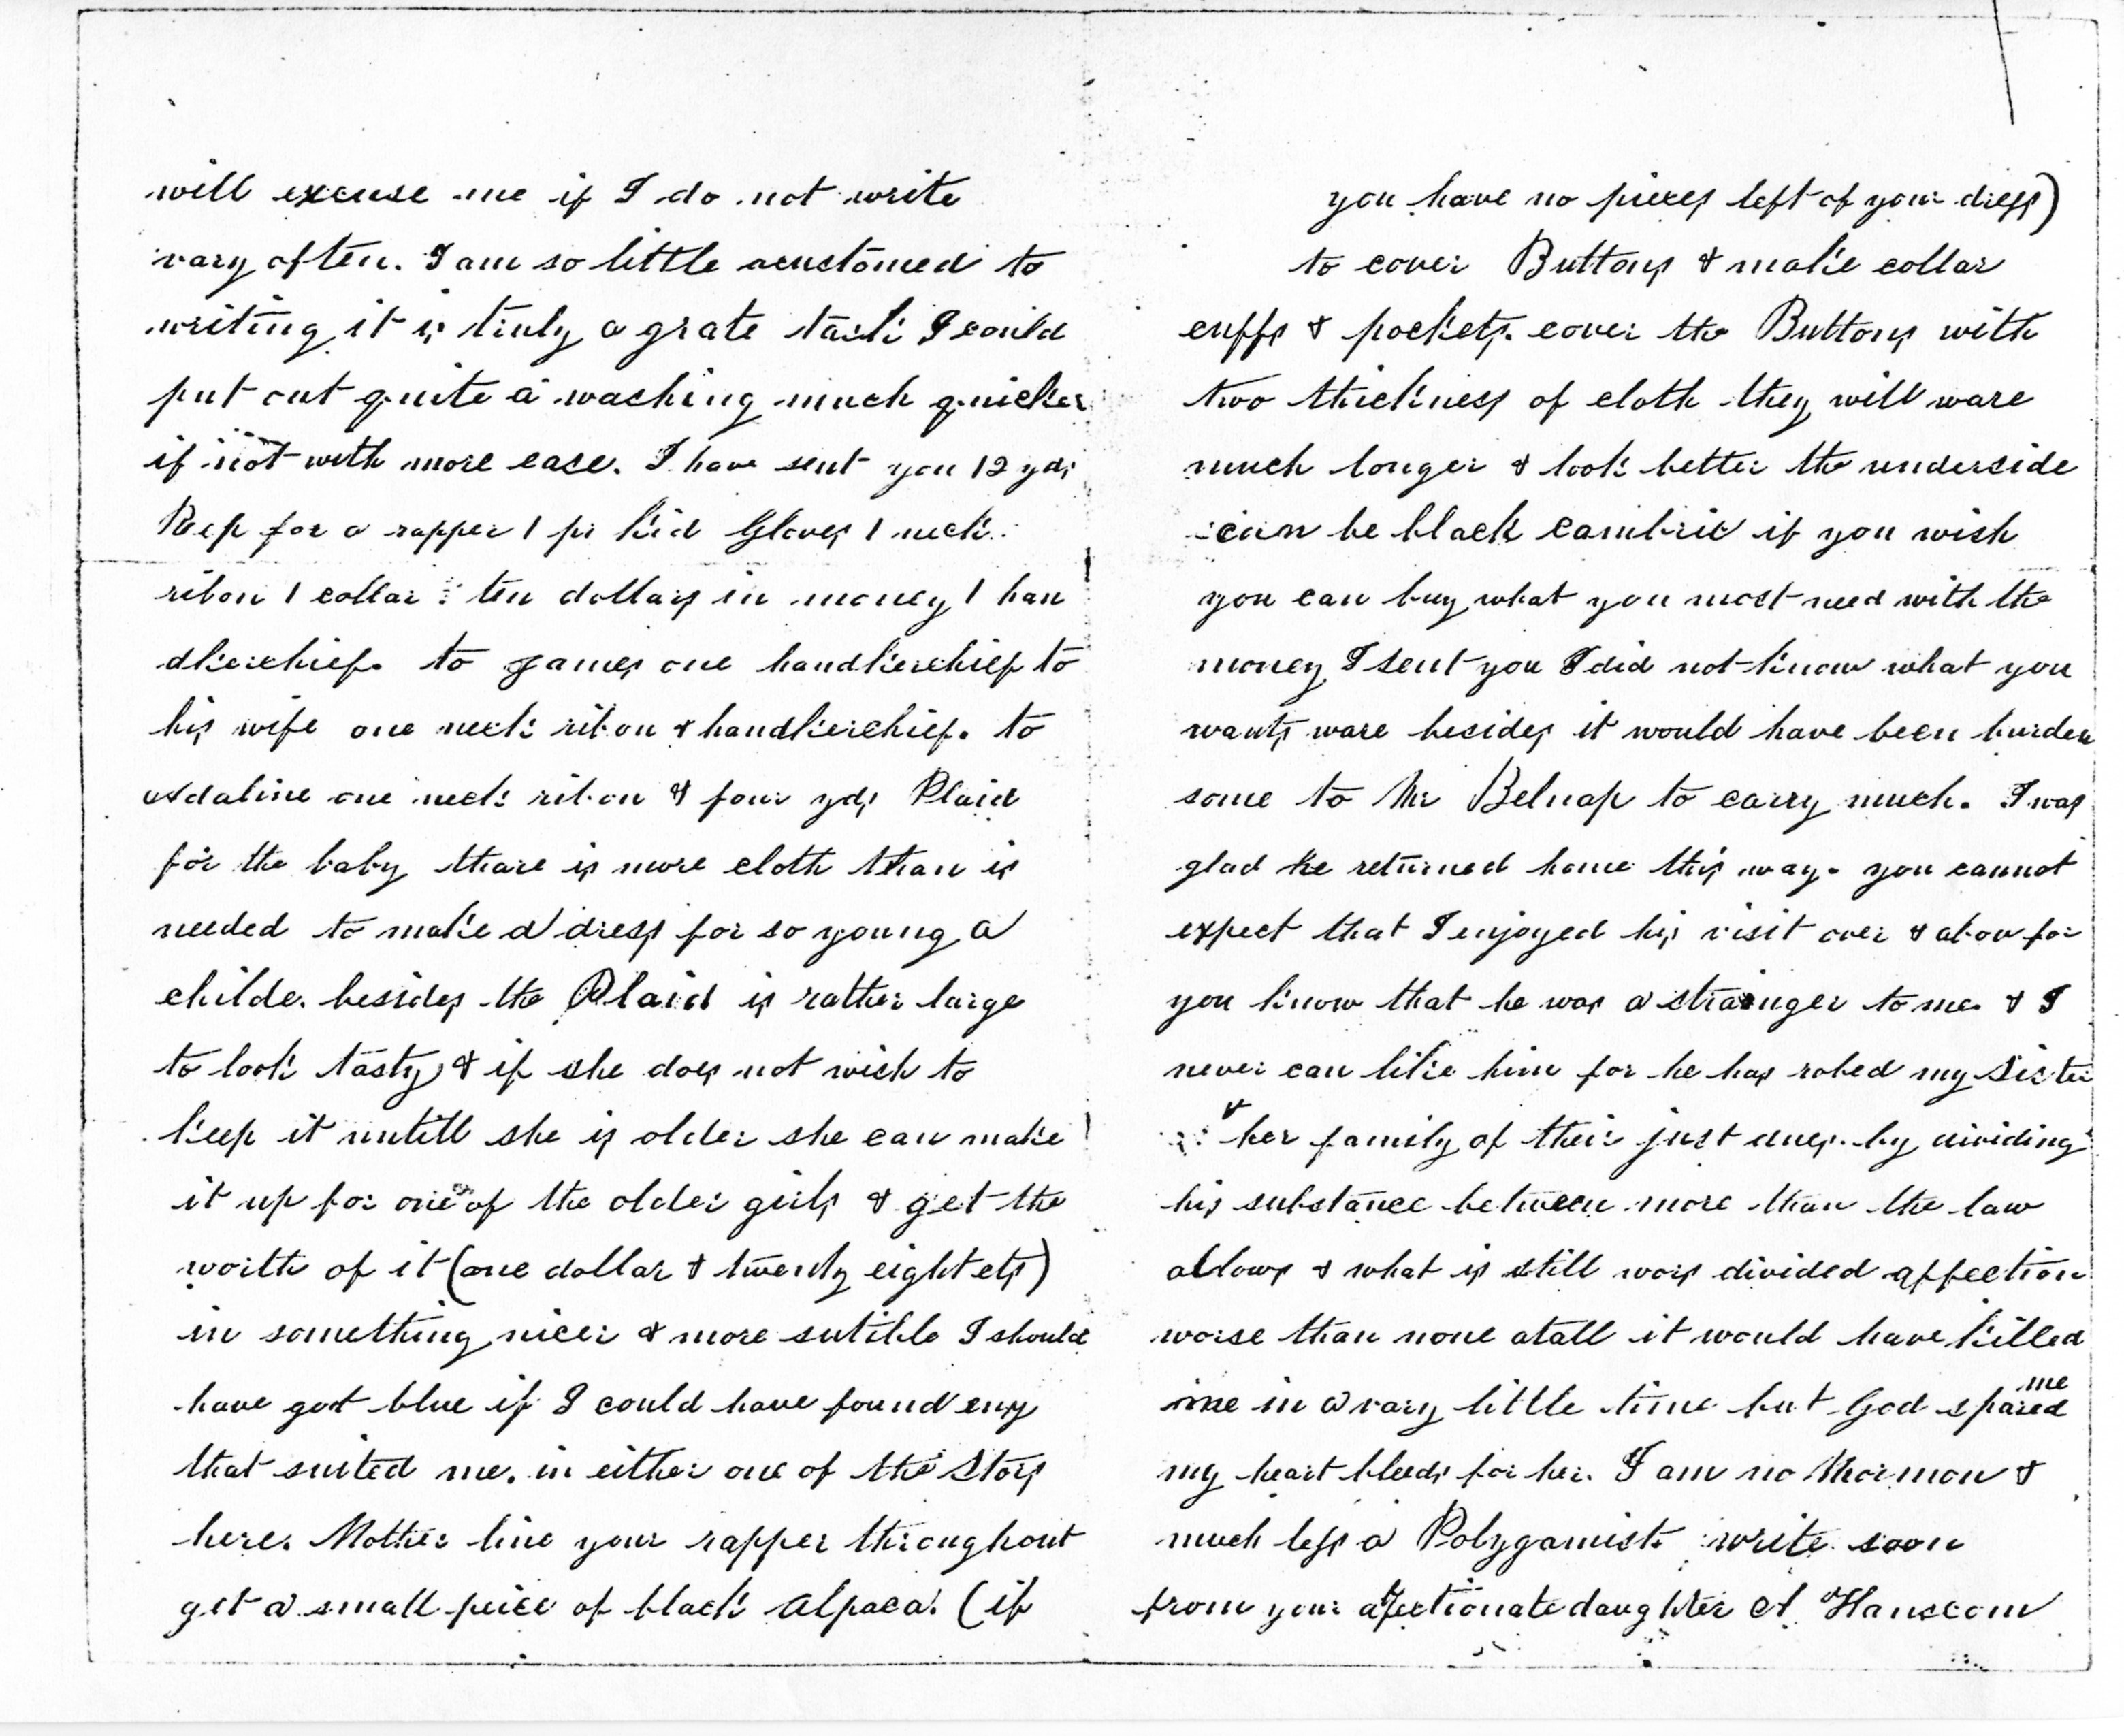 will excuse me if I do not write
vary often. I am so little acustomed to
writing it is truly a grate task I could
put out quite a washing much quicker
if not with more ease. I have sent you 12 yds
Rep for a rapper 1 pr kid Gloves 1 neck
ribon 1 collar ten dollars in money 1 han
dkerchief. to James one handkerchief to
his wife one neck ribon & handkerchief. to
Adaline one neck ribon & four yds Plaid
for the baby thare is more cloth than is
needed to make a dress for so young a
childe. besides the Plaid is rather large
to look tasty & if she does not wish to
keep it untill she is older she can make
it up for one of the older girls & get the
worth of it (one dollar & twenty eight cts)
in something nicer & more sutible I should
have got blue if I could have found eny
that suited me. in either one of the Stors
here. Mother line your rapper throughout
get a small peice of black Alpaca. (if
you have no pieces left of your dress)
to cover Buttons & make collar
cuffs & pockets. cover the Buttons with
two thickness of cloth they will ware
much longer & look better the underside
can be black cambric if you wish
you can buy what you most need with the
money I sent you I did not know what you
wants ware besides it would have been burden
some to Mr Belnap to carry much. I was
glad he returned home this way. you cannot
expect that I enjoyed his visit over & abov for
you know that he was a strainger to me & I
never can like him for he has robed my Sister
& her family of their just dues. by dividing
his substance between more than the law
allows & what is still wors divided affection
worse than none atall it would have killed
me in a vary little time but God spared me
my heart bleeds for her. I am no Mormon &
much less a Polygamist. write soon
from your afectionate daughter A Hanscom